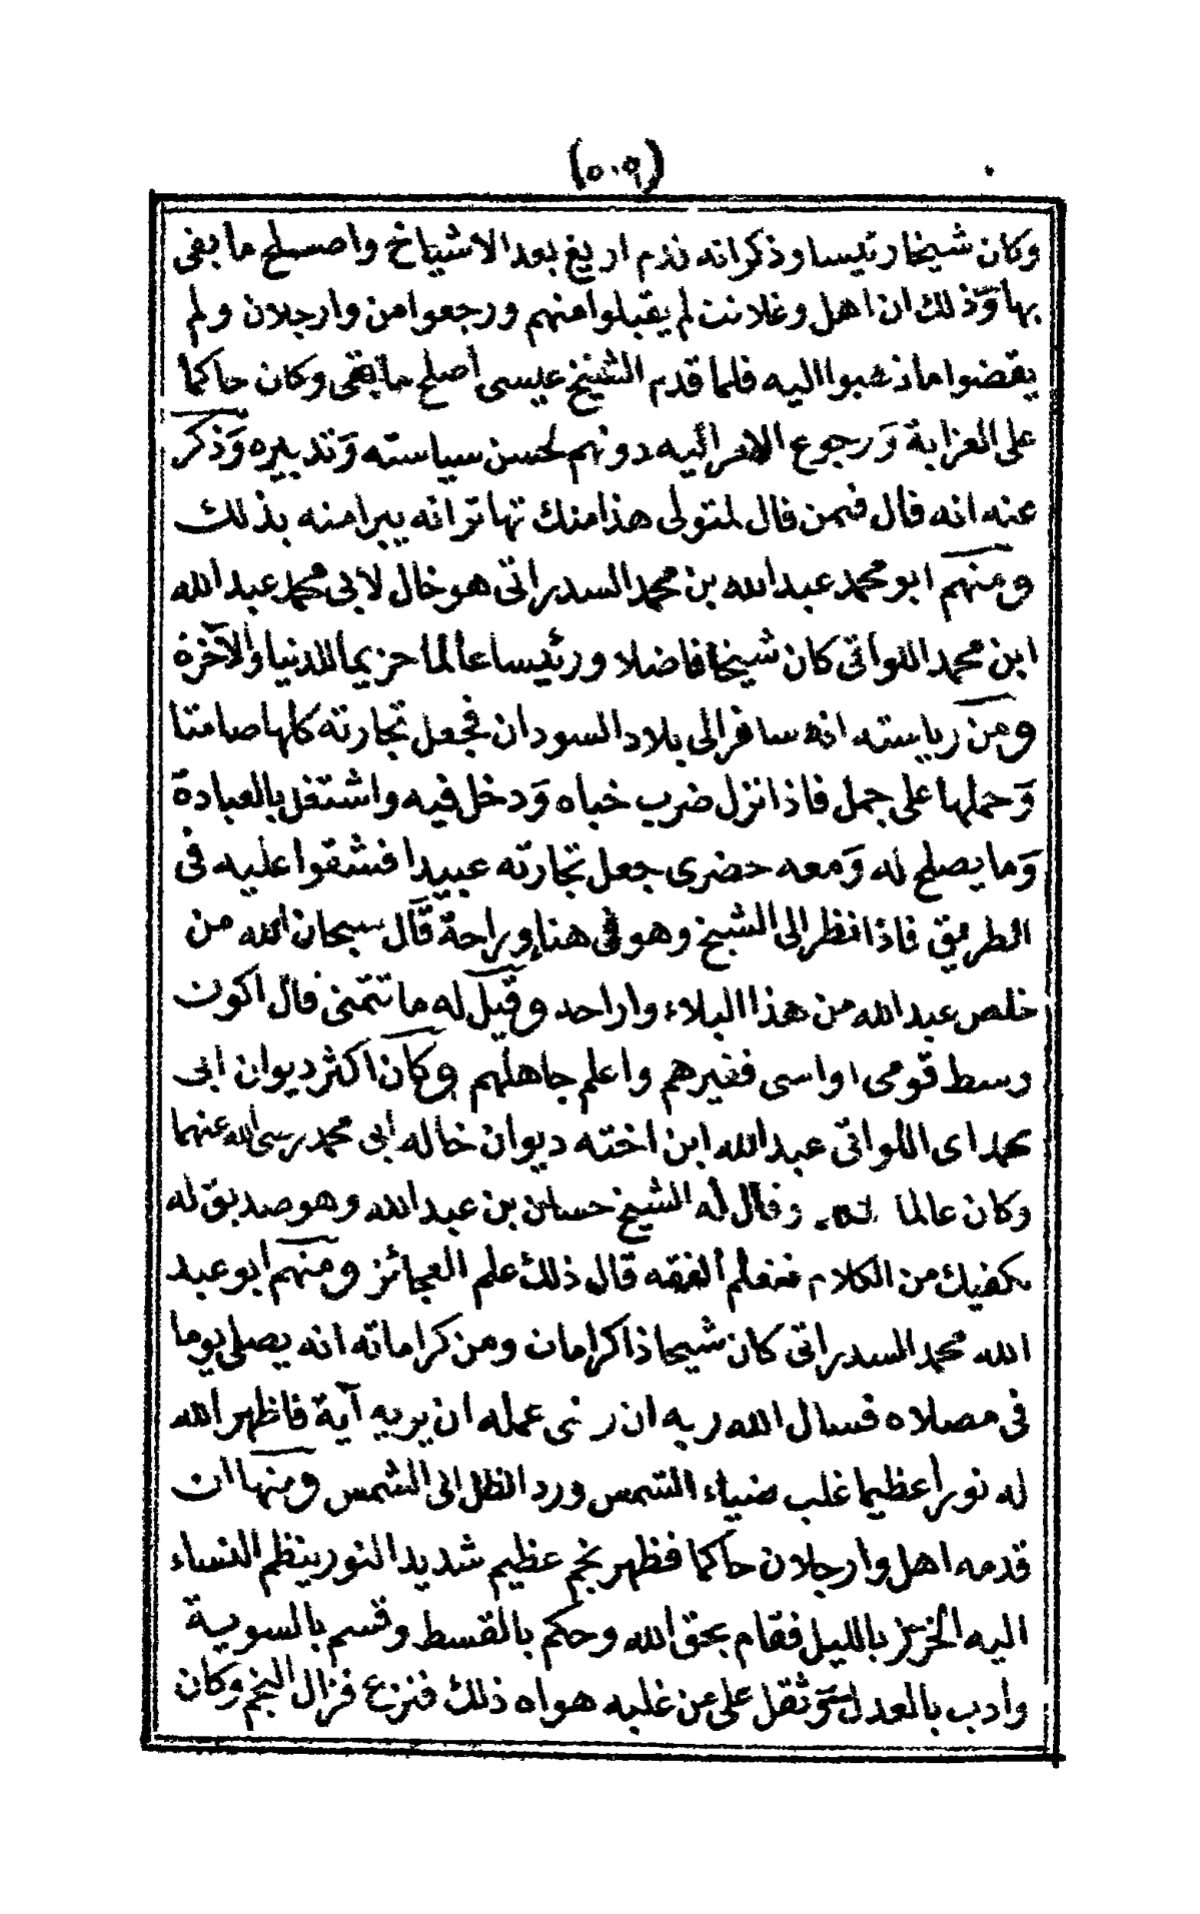 (٥٠٩)
وكان شيخا رئيسا وذكر انه ندم اريغ بعد الاشياخ واصلح ما بقى
بها وذلك ان اهل وغلانت لم يقبلوا منهم ورجعوا من وارجلان ولم
يقضوا ما اليه فلما قدم الشيخ عيسى أصلح ما بقى وكان حاكما
على العزابة ورجوع الامر اليه دونهم لحسن سياسته وتدبيره وذكر
عنه انه قال فيمن قال لمتولى هذا منك تهاتر انه يبرا منه بذلك
ومنهم ابو محمد عبد الله بن محمد السدراتى هو خال لابى محمد عبد الله
ابن محمد اللواتى كان شيخا فاضلا ورئيسا عالما حزيما للدنيا والآخرة
ومن رياسته انه سافر الى بلاد السودان فجعل تجارته كلها صامتا
وحملها على جمل فاذا نزل ضرب خباه ودخل فيه واشتغل بالعبادة
وما يصلح له ومعه حضرى جعل تجارته عبيدا فشقوا عليه فى
الطريق فاذا نظر الى الشيخ وهو فى هناء وراحة قال سبحان الله من
خلص عبد الله من هذا البلاء واراحه وقيل له ما تتمنى قال اكون
وسط قومى اواسى فقيرهم واعلم جاهلهم وكان اكثر ديوان ابى
محمد اى اللواتى عبد الله ابن اخته ديوان خاله ابى محمد رضى الله عنهما
وكان عالما وقال له الشيخ حسان بن عبد الله وهو صديق له
يكفيك من الكلام فتعلم الفقه قال ذلك علم العجائز ومنهم ابو عبد
الله محمد السدراتى كان شيخا ذا كرامات ومن كراماته انه يصلى يوما
فى مصلاه فسال الله ربه ان رضى عمله ان يريه آية فاظهر الله
له نورا عظيما غلب ضياء الشمس ورد الظل الى الشمس ومنها ان
قدمه اهل وارجلان حاكما فظهر نجم عظيم شديد النور ينظم النساء
اليه الخرز بالليل فقام بحق الله وحكم بالقسط وقسم بالسوية
وأدب بالعدل وثقل على من غلبه هواه ذلك فنزع فزال النجم وكان